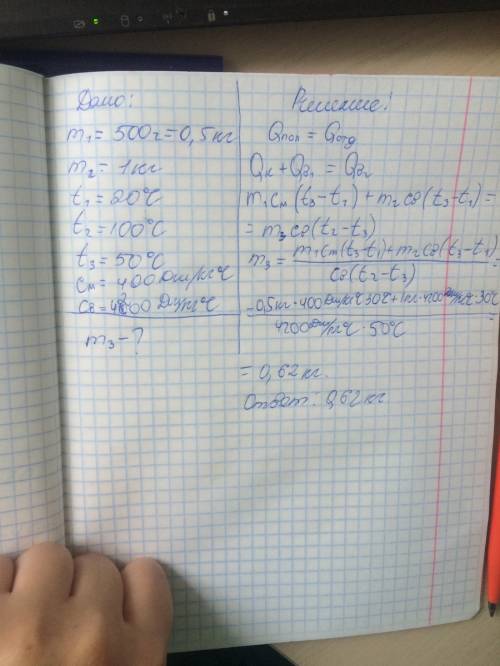 Дано:
m₁ = 500г = 0,5 кг
m₂ = 1 кг
t₁ = 20°C
t₂ = 100°C
t₃ = 50°C
cм = 400 Дж/кг°C
cв = 4200 Дж/кг°C
m₃ - ?
Решение!
Qпол = Qотд
Qк + Qв₁ = Qв₂
m₁cм(t₃-t₁) + m₂cв(t₃-t₁) =
= m₃cв(t₂-t₃)
m₃ = m₁cм(t₃-t₁) + m₂cв(t₃-t₁) / cв(t₂-t₃) =
= 0,5кг·400Дж/кг°C·30°C + 1кг·4200Дж/кг°C·30°C / 4200Дж/кг°C·50°C =
= 0,62 кг.
Ответ: 0,62 кг